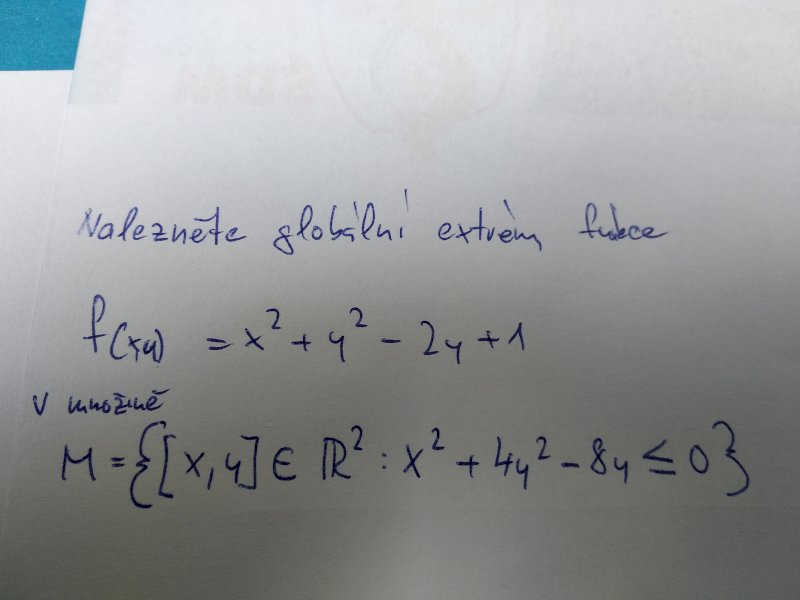 Nalezněte globální extrém funkce
f(x,y) = x² + y² - 2y + 1
v množině
M = {[x, y] ∈ ℝ² : x² + 4y² - 8y ≤ 0}